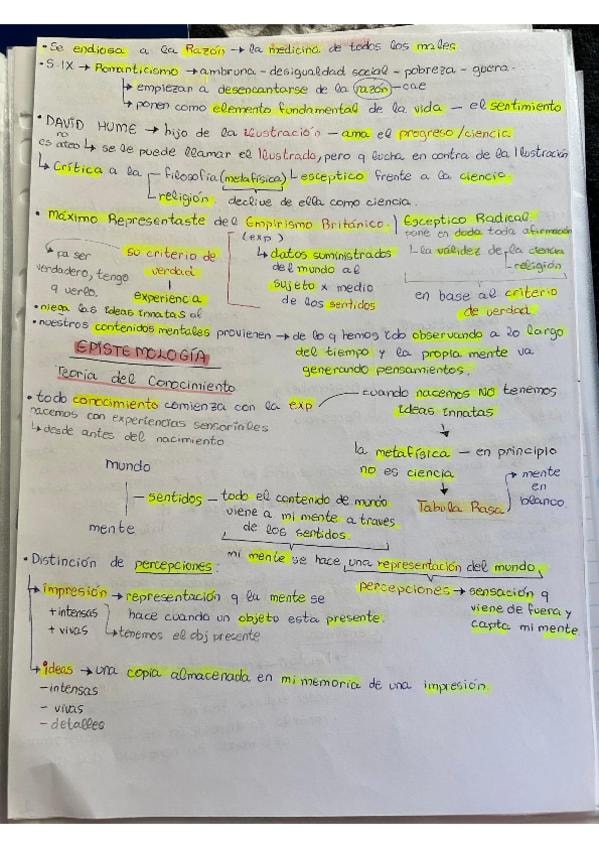 • Se endiosa a la Razón → la medicina de todos los males.
• S. IX → Romanticismo → ambruna - desigualdad social - pobreza - guerra.
↳ empiezan a desencantarse de la razón - cae
↳ ponen como elemento fundamental de la vida — el sentimiento
• DAVID HUME → hijo de la Ilustración - ama el progreso/ciencia.
no es ateo ↳ se le puede llamar el Ilustrado, pero q lucha en contra de la Ilustración
↳ Crítica a la filosofía (metafísica) ↳ esceptico frente a la ciencia.
religión. declive de ella como ciencia.
• Máximo Representaste del Empirismo Británico. | Esceptico Radical.
(exp)
pone en duda toda afirmación
↳ pa ser verdadero, tengo q verlo.
su criterio de verdad
↓
experiencia
↳ datos suministrados
del mundo al
sujeto x medio
de los sentidos
↳ la validez de la ciencia
religión
en base al criterio
de verdad
• niega las Ideas Innatas al
• nuestros contenidos mentales provienen → de lo q hemos ido observando a lo largo
del tiempo y la propia mente va
generando pensamientos.
EPISTEMOLOGÍA
Teoría del Conocimiento
• todo conocimiento comienza con la exp
nacemos con experiencias sensoriales
↳ desde antes del nacimiento
cuando nacemos NO tenemos
Ideas Innatas
↓
la metafísica — en principio
no es ciencia
↓
Tabula Rasa
→ mente
en
blanco.
mundo
sentidos — todo el contenido de mundo
viene a mi mente a traves
de los sentidos.
mente
mi mente se hace una representación del mundo.
• Distinción de percepciones:
percepciones → sensación q
viene de fuera y
capta mi mente.
↳ impresión → representación q la mente se
hace cuando un objeto esta presente.
+ intensas
+ vivas
↳ tenemos el obj presente
↳ ideas → una copia almacenada en mi memoria de una impresión.
- intensas
- vivas
- detalles